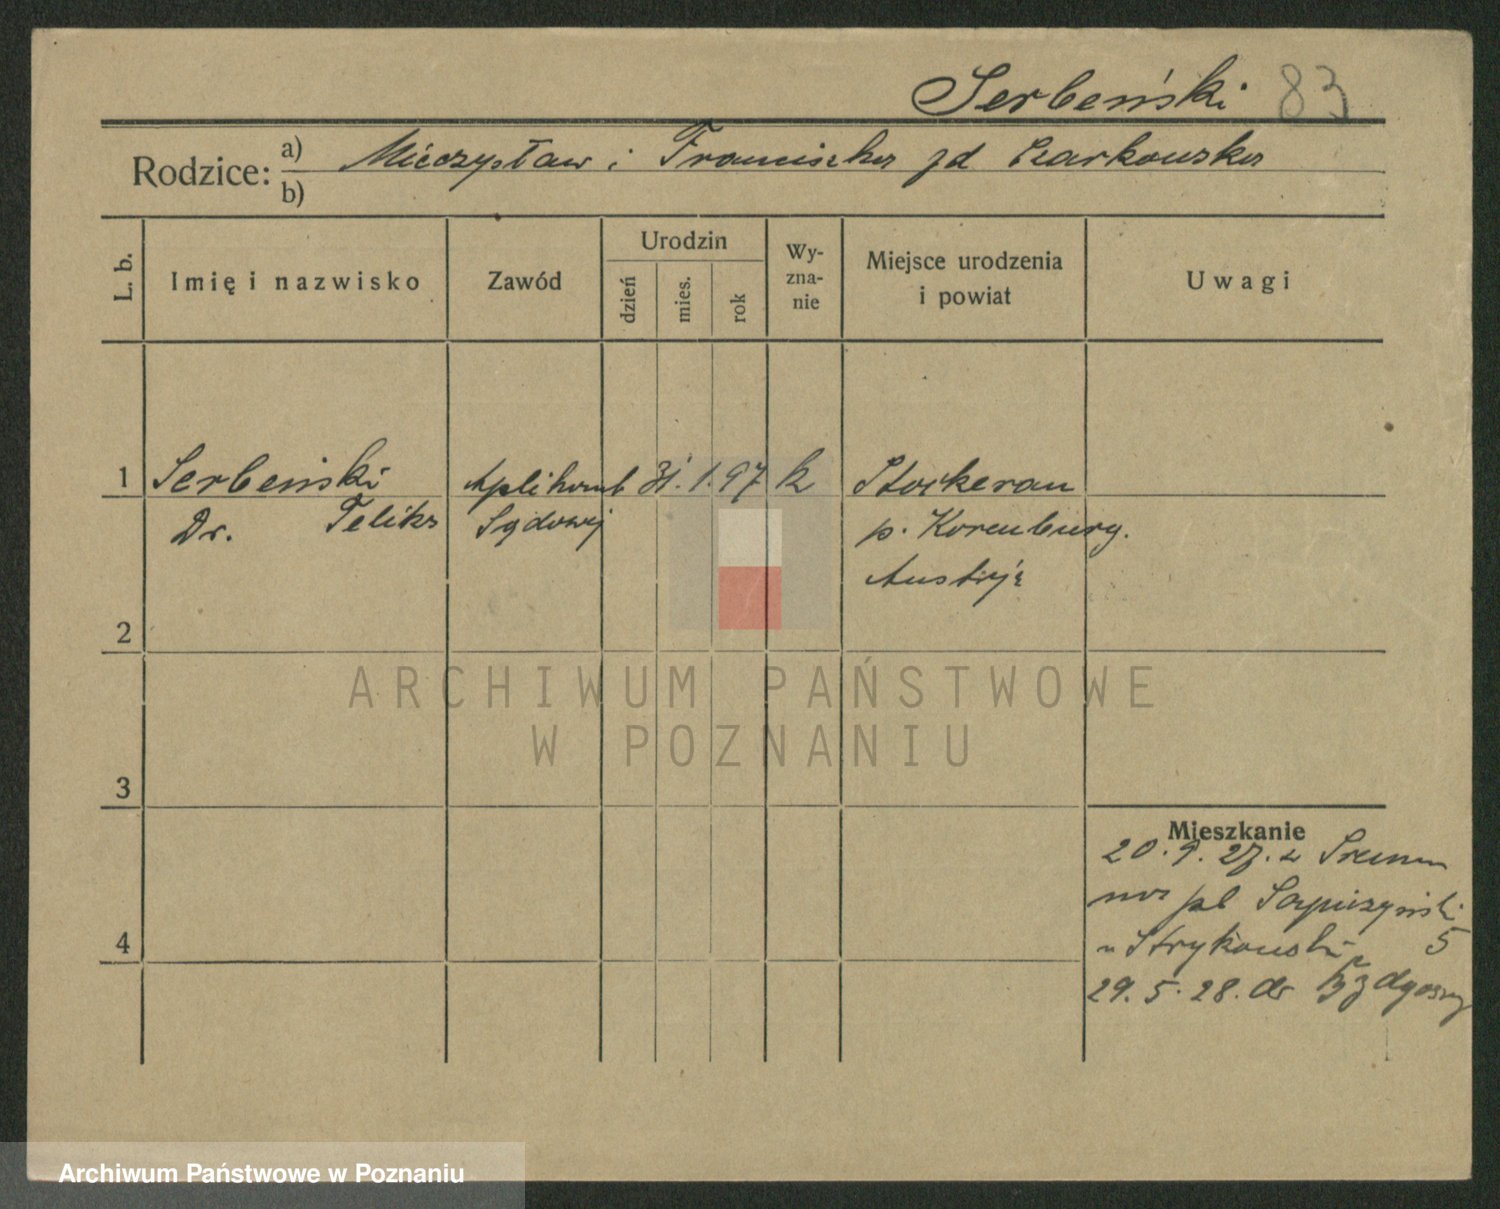 Serbeński 83
Rodzice: a) Mieczysław i Franciszka zd Czarkowska
b)
L. b.
Imię i nazwisko
Zawód
Urodzin
dzień
mies.
rok
Wy-
zna-
nie
Miejsce urodzenia
i powiat
Uwagi
1 Serbeński Aplikant 31. 1. 97 k Stockerau
Dr. Feliks Sądowy p. Korenburg.
Austrja
2
3
4
Mieszkanie
20. 9. 27. z Śremu
5
29. 5. 28. do Bydgoszczy
ARCHIWUM PAŃSTWOWE
W POZNANIU
Archiwum Państwowe w Poznaniu